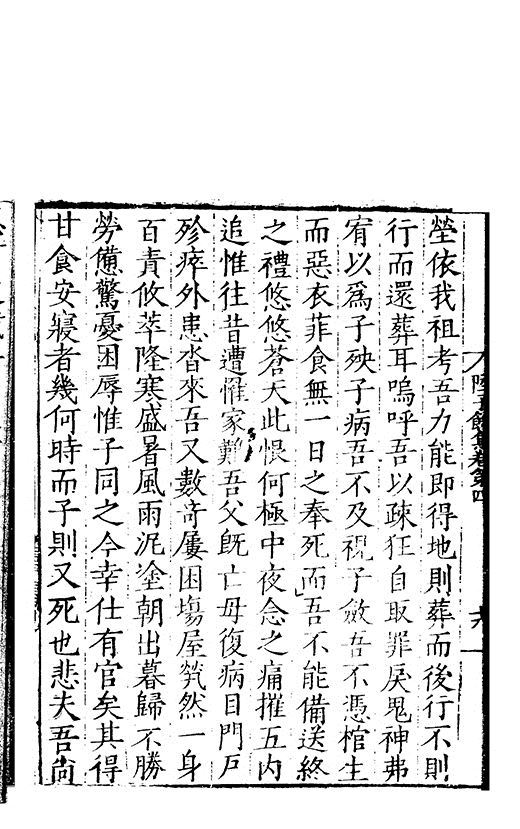 塋依我祖考吾力能即得地則葬而後行不則
行而還葬耳嗚呼吾以疎狂自取罪戾鬼神弗
宥以爲子殃子病吾不及視子斂吾不憑棺生
而惡衣菲食無一日之奉死而吾不能備送終
之禮悠悠蒼天此恨何極中夜念之痛摧五内
追惟往昔遭罹家難吾父既亡母復病目門戸
殄瘁外患沓來吾又數竒屢困塲屋煢然一身
百責攸萃隆寒盛暑風雨泥塗朝出暮歸不勝
勞憊驚憂困辱惟子同之今幸仕有官矣其得
甘食安寢者幾何時而子則又死也悲夫吾尚